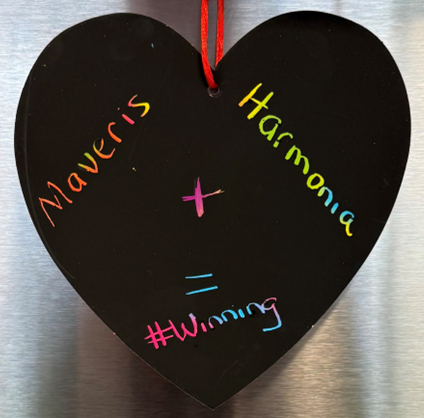 Maveris
Harmonia
+
=
#Winning